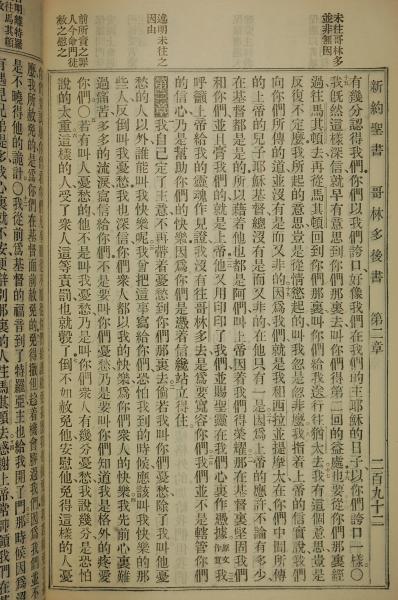 新約聖書 哥林多後書 第二章 二百九十二
未往哥林多
並非無因
有幾分認得我們你們以我們誇口好像我們在我們的主耶穌的日子以你們誇口一樣○
我旣然這樣深信就早有意思到你們那裏去叫你們得第二回的益處也要從你們那裏經
過往馬其頓去再從馬其頓回到你們那裏叫你們給我送行往猶太去我有這個意思豈是
反復不定麽我所起的意思豈是從情慾起的叫我忽是忽非麽我指着上帝的信實說我們
向你們所傳的道並沒有是而又非的因爲我們就是我和西拉並提摩太在你們中間所傳
的上帝的兒子耶穌基督總沒有是而又非的在他只有一是因爲上帝的應許不論有多少
在基督都是是的所以藉着他也都是阿們叫上帝因着我們得榮耀那在基督裏堅固我們
和你們並且膏我們的就是上帝他又用印印了我們並賜聖靈在我們心裏作憑據原文作質○我
述明未往之
因由
呼籲上帝給我的靈魂作見證我沒有往哥林多去是爲要寬容你們我們並不是轄管你們
的信心乃是幫助你們的快樂因爲你們是憑着信纔站立得住
第二章 我自己定了主意不再帶着憂愁到你們那裏去倘若我叫你們憂愁除了我叫他憂
愁的人以外誰能叫我快樂呢我曾把這事寫給你們恐怕我到的時候應該叫我快樂的那
些人反倒叫我憂愁我也深信你們衆人都以我的快樂爲你們衆人的快樂我先前心裏難
過痛苦多多的流淚寫信給你們不是要叫你們憂愁乃是要叫你們知道我是格外的疼愛
前所責之罪
人今命門徒
赦之慰之
你們○若有叫人憂愁的他不是叫我憂愁乃是叫你們衆人有幾分憂愁我說幾分是恐怕
說的太重這樣的人受了衆人這等責罰也就彀了倒不如赦免他安慰他免得這樣的人憂